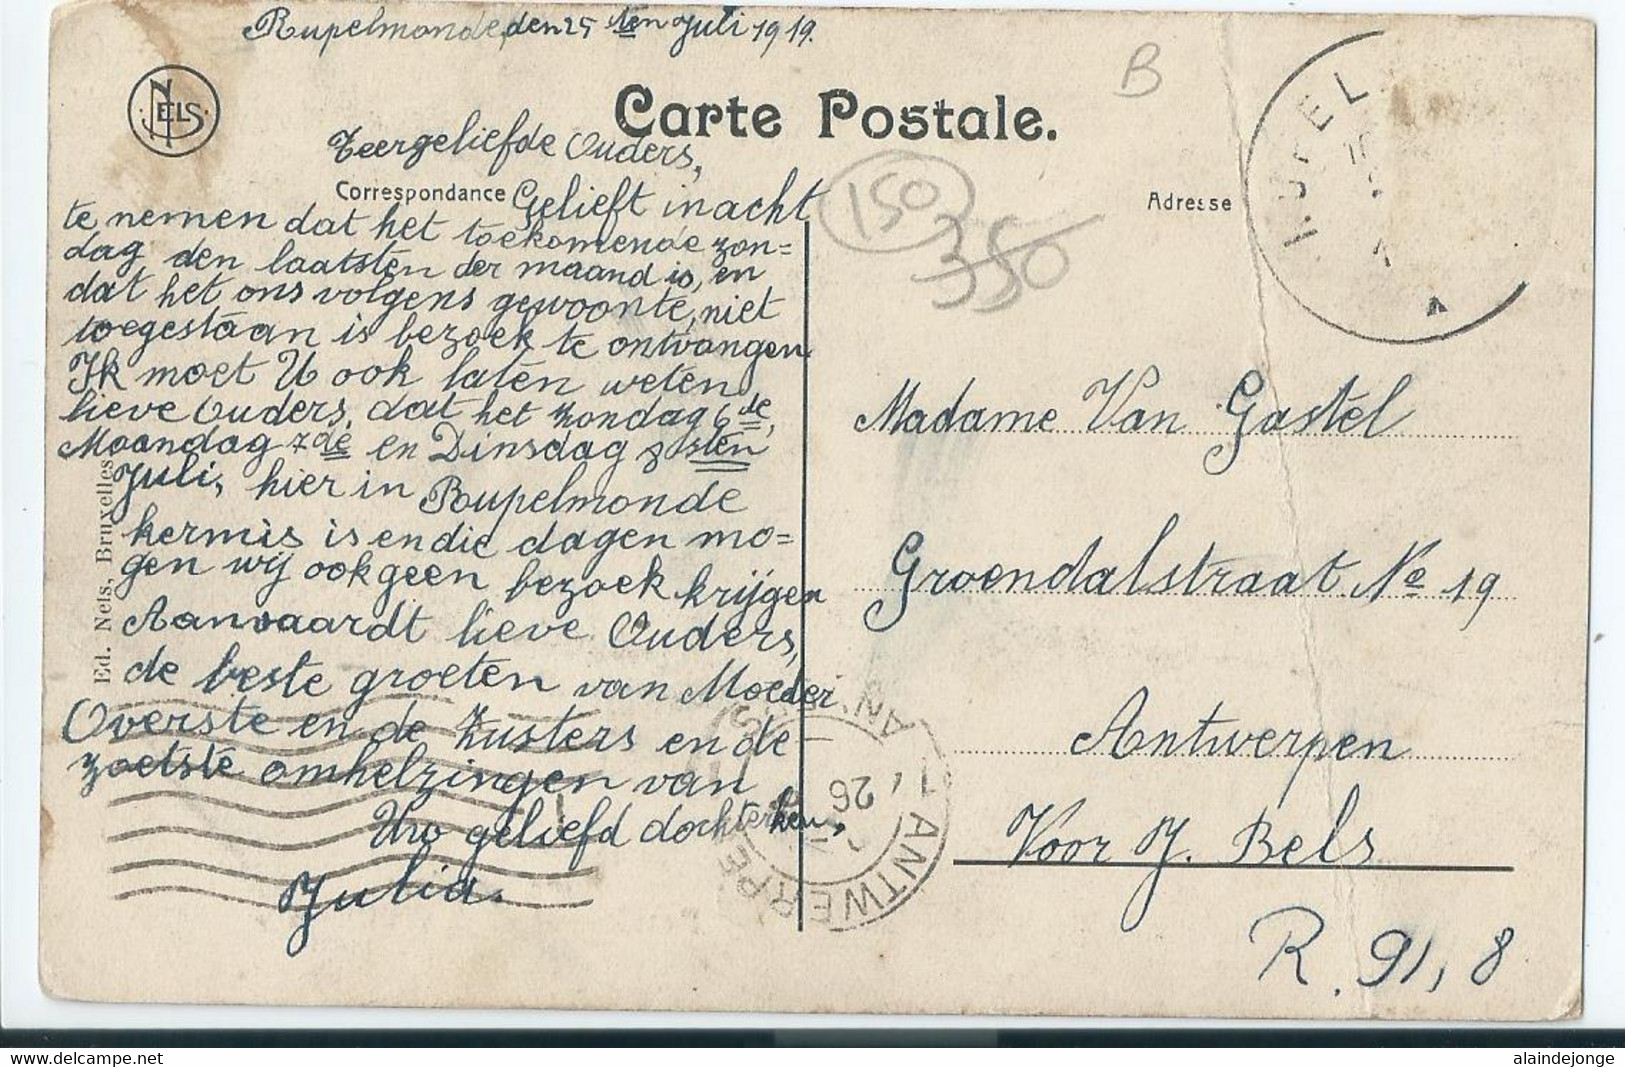 Rupelmonde, den 25sten Juli 1919.
NELS
Carte Postale.
B
Zeergeliefde Ouders,
Correspondance
Gelieft in acht
te nemen dat het toekomende zon=
dag den laatsten der maand is, en
dat het ons volgens gewoonte, niet
toegestaan is bezoek te ontvangen.
Ik moet U ook laten weten
lieve Ouders, dat het Zondag 6de,
Maandag 7de en Dinsdag 8sten
Juli, hier in Rupelmonde
kermis is en die dagen mo=
gen wij ook geen bezoek krijgen
Aanvaardt lieve Ouders,
de beste groeten van Moeder
Overste en de Zusters en de
zoetste omhelzingen van
Uw geliefd dochterken,
Julia.
Ed. Nels, Bruxelles
150
350
Adresse
Madame Van Gastel
Groendalstraat No 19
Antwerpen
Voor J. Bels
R. 91, 8
ANTWERPE
26
alaindejonge